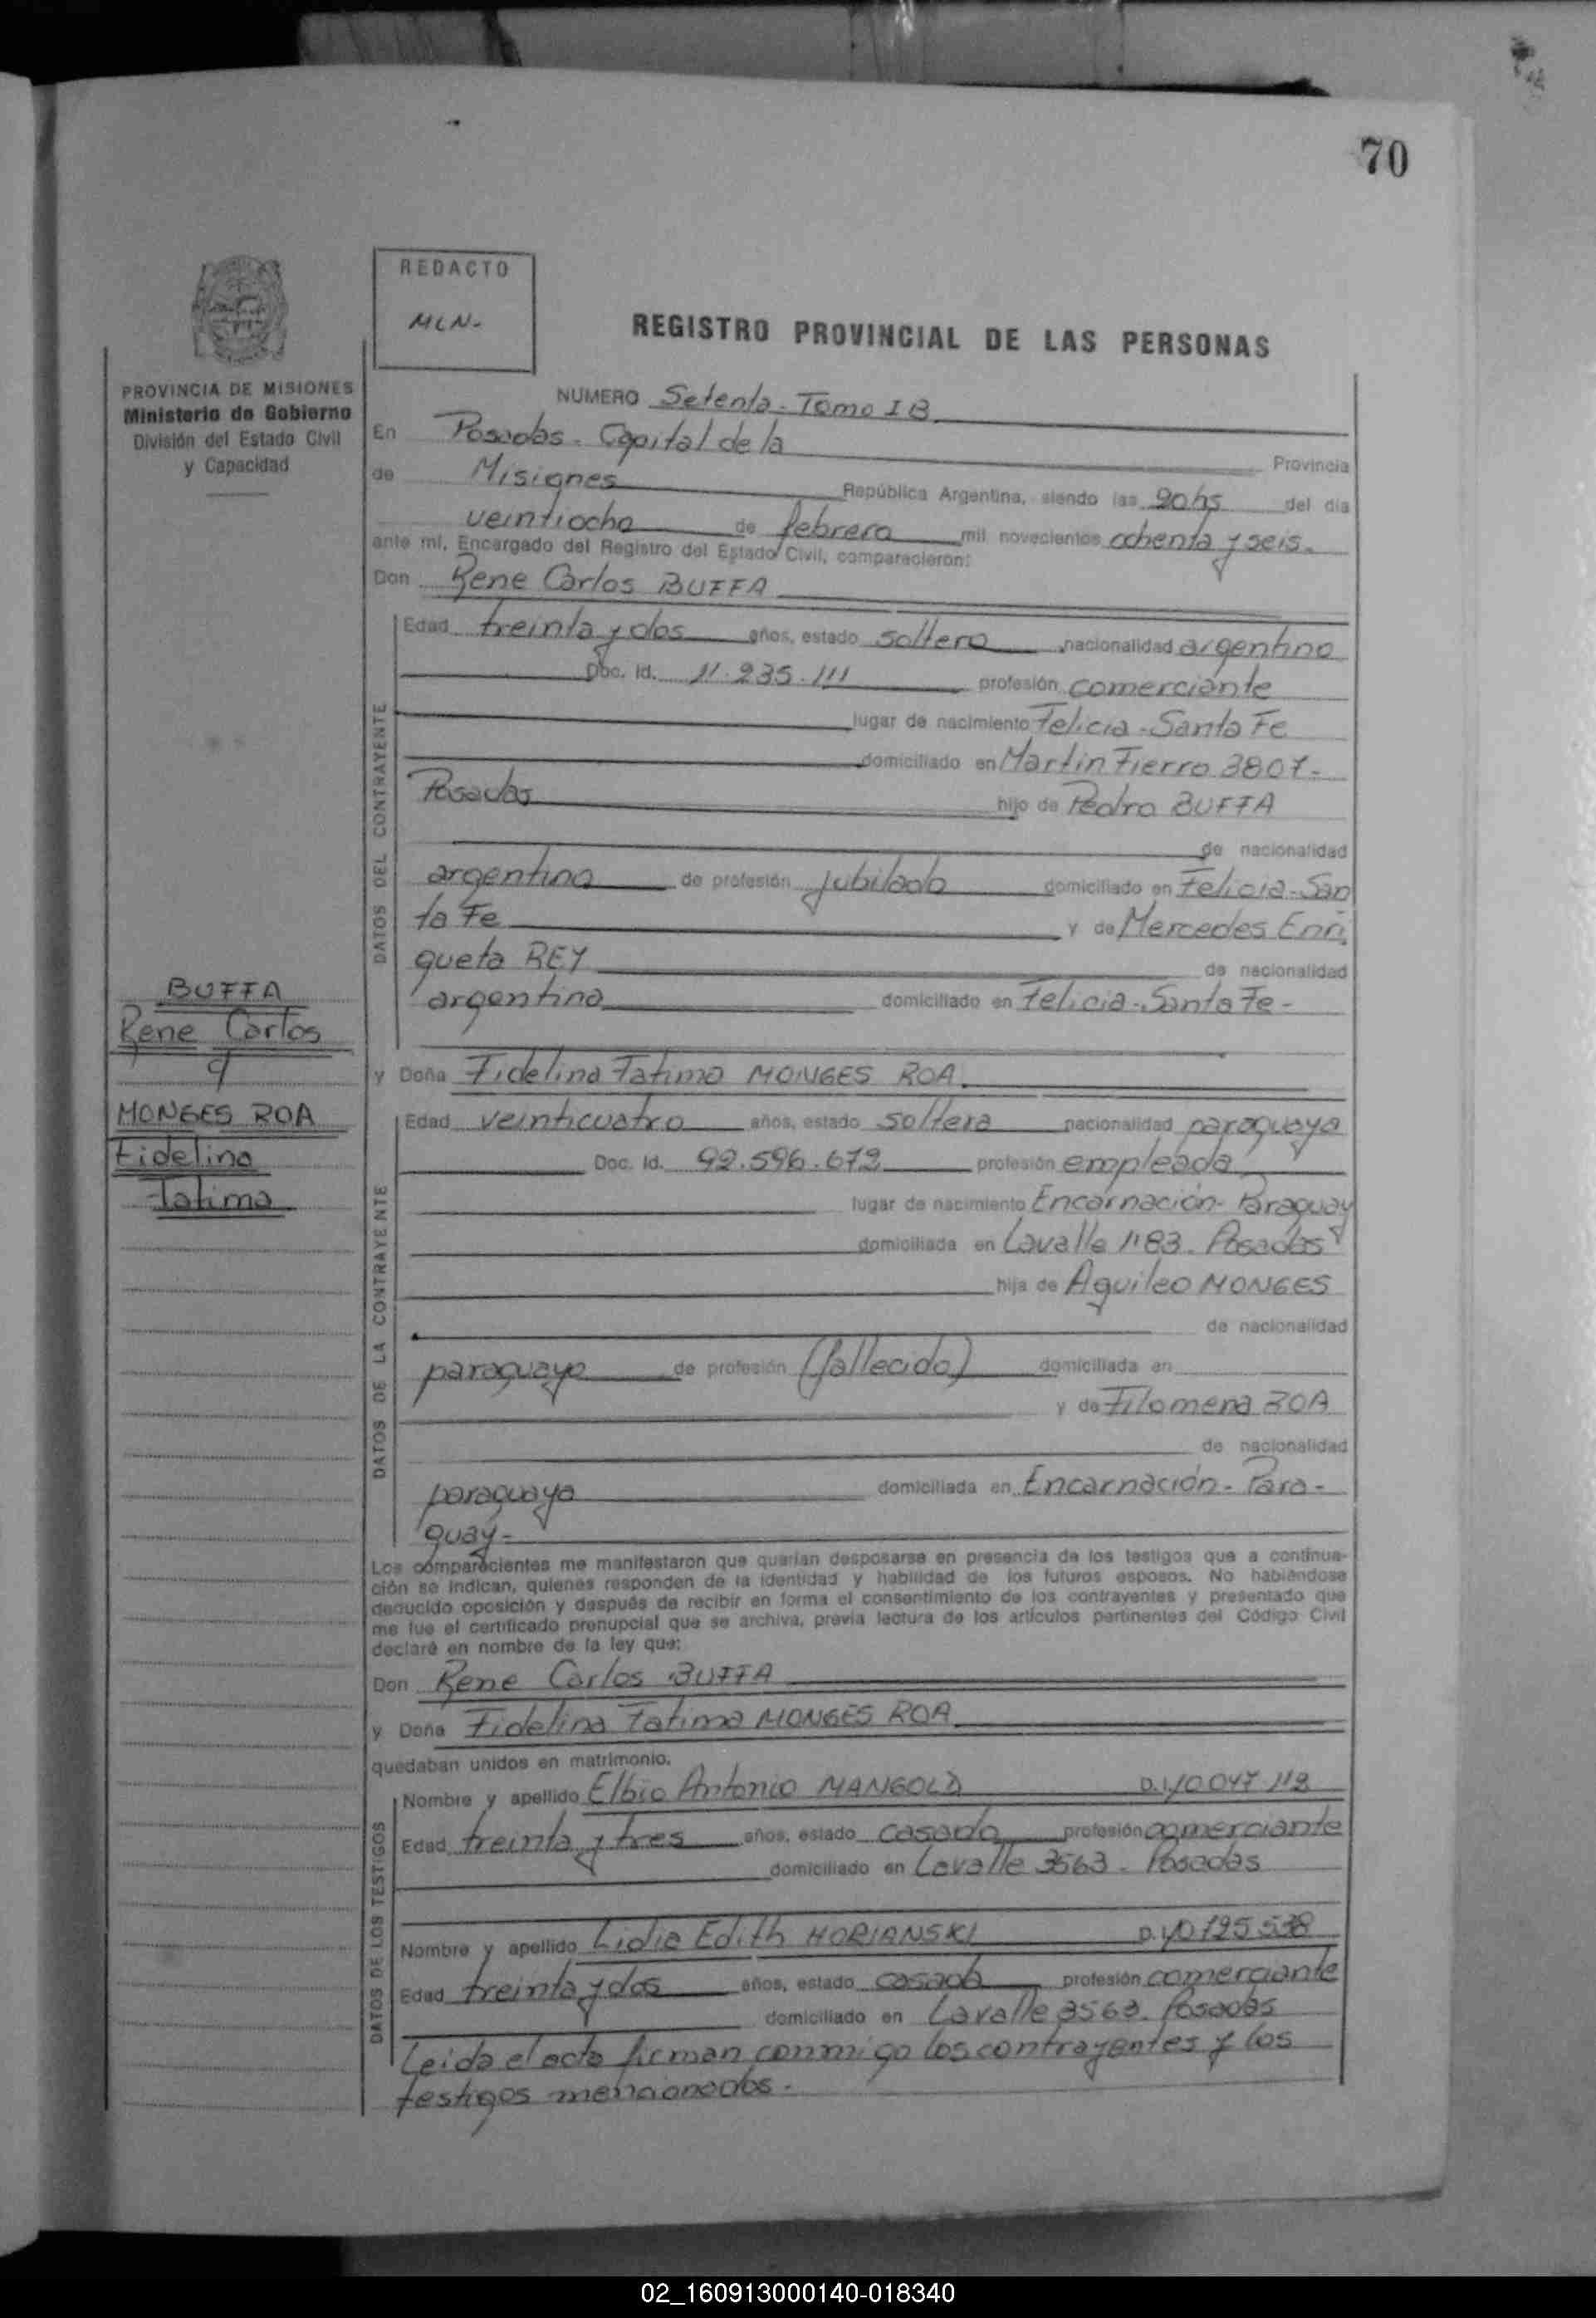 70
REDACTO
MLN.
REGISTRO PROVINCIAL DE LAS PERSONAS
PROVINCIA DE MISIONES
Ministerio de Gobierno
División del Estado Civil
y Capacidad
NUMERO Setenta - Tomo I B
En Posadas - Capital de la Provincia
de Misiones República Argentina, siendo las 20 hs del día
veintiocho de febrero mil novecientos ochenta y seis.
ante mí, Encargado del Registro del Estado Civil, comparecieron:
Don Rene Carlos BUFFA
DATOS DEL CONTRAYENTE
Edad treinta y dos años, estado soltero nacionalidad argentino
Doc. Id. 11.235.111 profesión comerciante
lugar de nacimiento Felicia - Santa Fe
domiciliado en Martin Fierro 3807 -
Posadas hijo de Pedro BUFFA
de nacionalidad
argentino de profesión jubilado domiciliado en Felicia - San
ta Fe y de Mercedes Enri
queta REY de nacionalidad
argentina domiciliado en Felicia - Santa Fe -
BUFFA
Rene Carlos
y
MONGES ROA
Fidelina
Fatima
y Doña Fidelina Fatima MONGES ROA.
DATOS DE LA CONTRAYENTE
Edad veinticuatro años, estado soltera nacionalidad paraguaya
Doc. Id. 92.596.672 profesión empleada
lugar de nacimiento Encarnación - Paraguay
domiciliada en Lavalle 1183 - Posadas
hija de Aquileo MONGES
de nacionalidad
paraguayo de profesión (fallecido) domiciliada en
y de Filomena ROA
de nacionalidad
paraguaya domiciliada en Encarnación - Para -
guay -
Los comparecientes me manifestaron que querían desposarse en presencia de los testigos que a continua-
ción se indican, quienes responden de la identidad y habilidad de los futuros esposos. No habiéndose
deducido oposición y después de recibir en forma el consentimiento de los contrayentes y presentado que
me fue el certificado prenupcial que se archiva, previa lectura de los artículos pertinentes del Código Civil
declaré en nombre de la ley que:
Don Rene Carlos BUFFA
y Doña Fidelina Fatima MONGES ROA
quedaban unidos en matrimonio.
DATOS DE LOS TESTIGOS
Nombre y apellido Elbio Antonio MANGOLD D.I. 10.047.112
Edad treinta y tres años, estado casado profesión comerciante
domiciliado en Lavalle 3563 - Posadas
Nombre y apellido Lidia Edith HORIANSKI D.I. 10.795.538
Edad treinta y dos años, estado casada profesión comerciante
domiciliado en Lavalle 3563 - Posadas
Leida el acta firman conmigo los contrayentes y los
testigos mencionados -
02_160913000140-018340